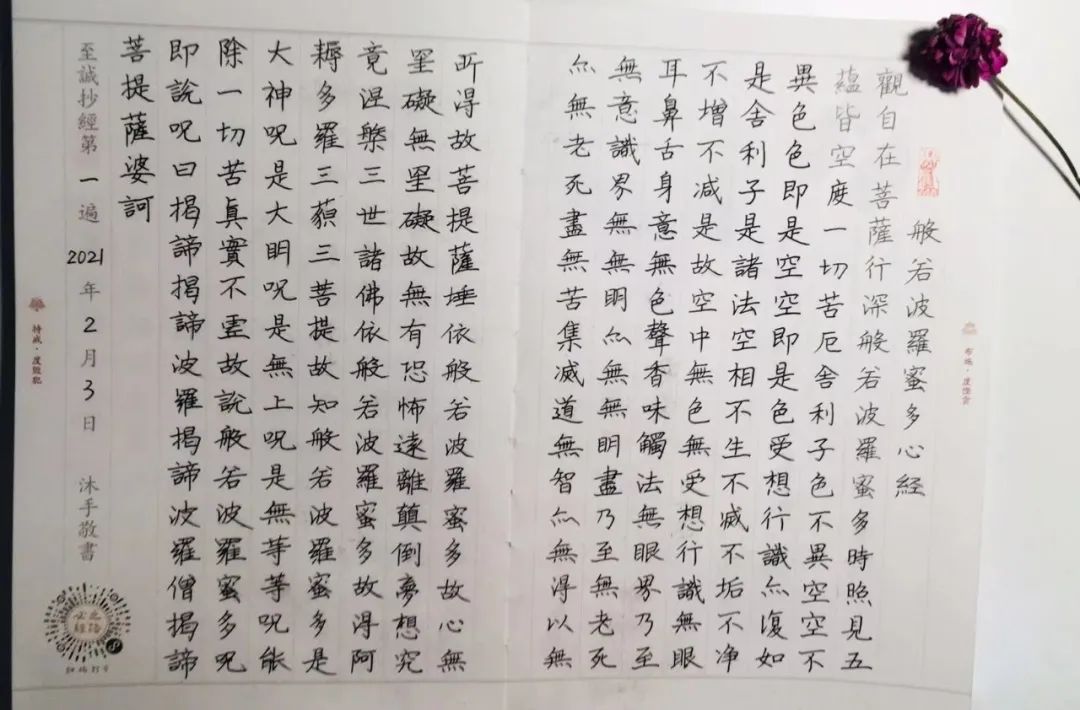 般若波羅蜜多心経
觀自在菩薩行深般若波羅蜜多時照見五
蘊皆空度一切苦厄舍利子色不異空空不
異色色即是空空即是色受想行識亦復如
是舍利子是諸法空相不生不滅不垢不净
不增不减是故空中無色無受想行識無眼
耳鼻舌身意無色聲香味觸法無眼界乃至
無意識界無無明亦無無明盡乃至無老死
亦無老死盡無苦集滅道無智亦無得以無
所得故菩提薩埵依般若波羅蜜多故心無
罣礙無罣礙故無有恐怖遠離顛倒夢想究
竟涅槃三世諸佛依般若波羅蜜多故得阿
耨多羅三藐三菩提故知般若波羅蜜多是
大神呪是大明呪是無上呪是無等等呪能
除一切苦真實不虛故說般若波羅蜜多呪
即說呪曰揭諦揭諦波羅揭諦波羅僧揭諦
菩提薩婆訶
至誠抄經第一遍 2021年2月3日 沐手敬書
持戒·度毀犯